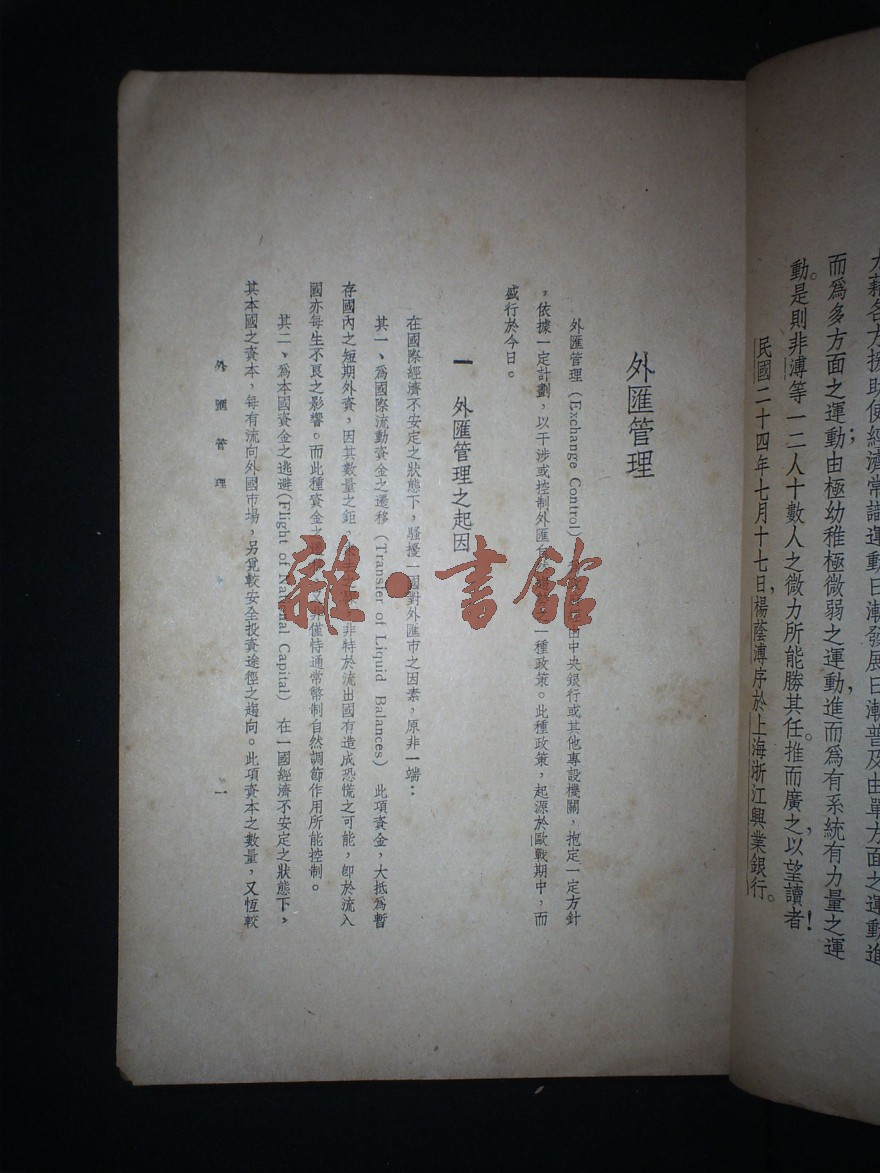 大藉各方援助使經濟常識運動日漸發展日漸普及由單方面之運動進
而爲多方面之運動；由極幼稚極微弱之運動，進而爲有系統有力量之運
動。是則非溥等一二人十數人之微力所能勝其任。推而廣之，以望讀者！
民國二十四年七月十七日，楊蔭溥序於上海浙江興業銀行。
外匯管理
外匯管理（Exchange Control） 由中央銀行或其他專設機關，抱定一定方針
，依據一定計劃，以干涉或控制外匯自 之一種政策。此種政策，起源於歐戰期中，而
盛行於今日。
一 外匯管理之起因
在國際經濟不安定之狀態下，騷擾一國對外匯市之因素，原非一端：
其一、爲國際流動資金之遷移（Transfer of Liquid Balances） 此項資金，大抵爲暫
存國內之短期外資，因其數量之鉅， 非特於流出國有造成恐慌之可能，卽於流入
國亦每生不良之影響。而此種資金之 非僅恃通常幣制自然調節作用所能控制。
其二、爲本國資金之逃避（Flight of National Capital） 在一國經濟不安定之狀態下，
其本國之資本，每有流向外國市場，另覓較安全投資途徑之趨向。此項資本之數量，又恆較
外匯管理
一
雜·書館